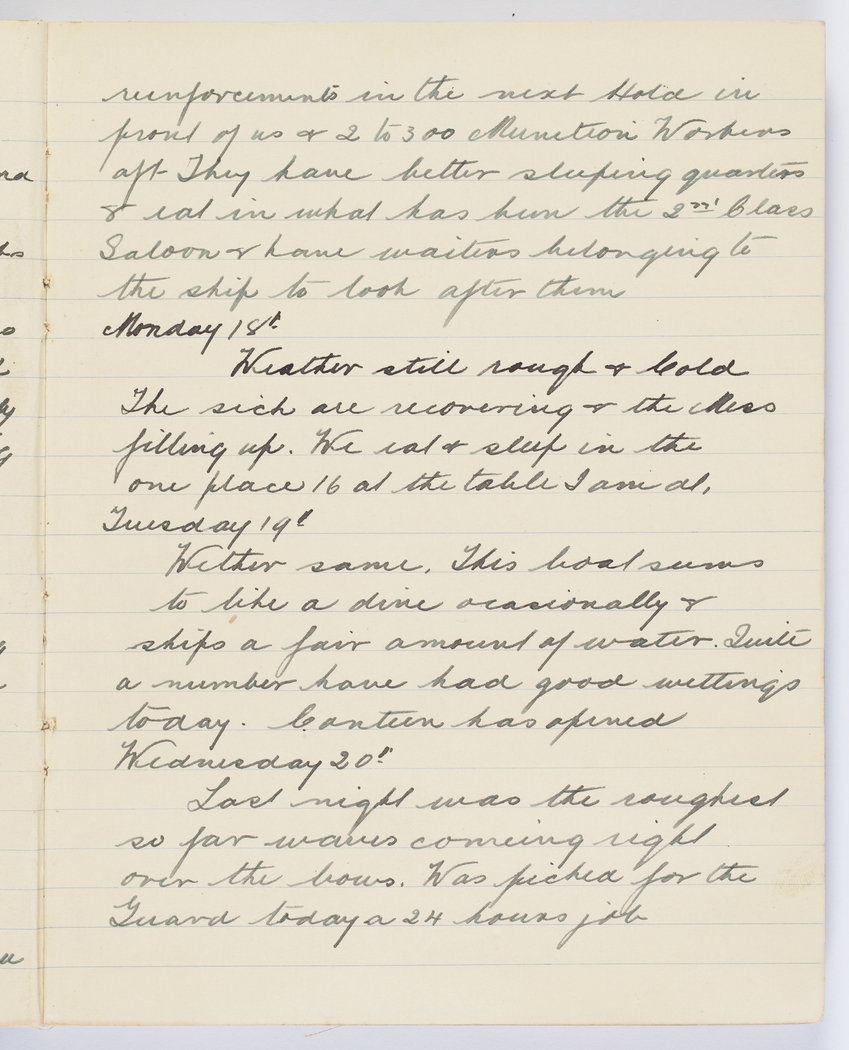 reinforcements in the next Hold in
front of us & 2 to 300 Munition Workers
aft They have better sleeping quarters
& eat in what has been the 2nd Class
Saloon & have waiters belonging to
the ship to look after them
Monday 18th
Weather still rough & Cold
The sick are recovering & the Mess
filling up. We eat & sleep in the
one place 16 at the table I am at.
Tuesday 19th
Wether same. This boat seems
to like a dive ocasionally &
ships a fair amount of water. Quite
a number have had good wettings
today. Canteen has opened
Wednesday 20th
Last night was the roughest
so far waves comeing right
over the bows. Was picked for the
Guard today a 24 hours job